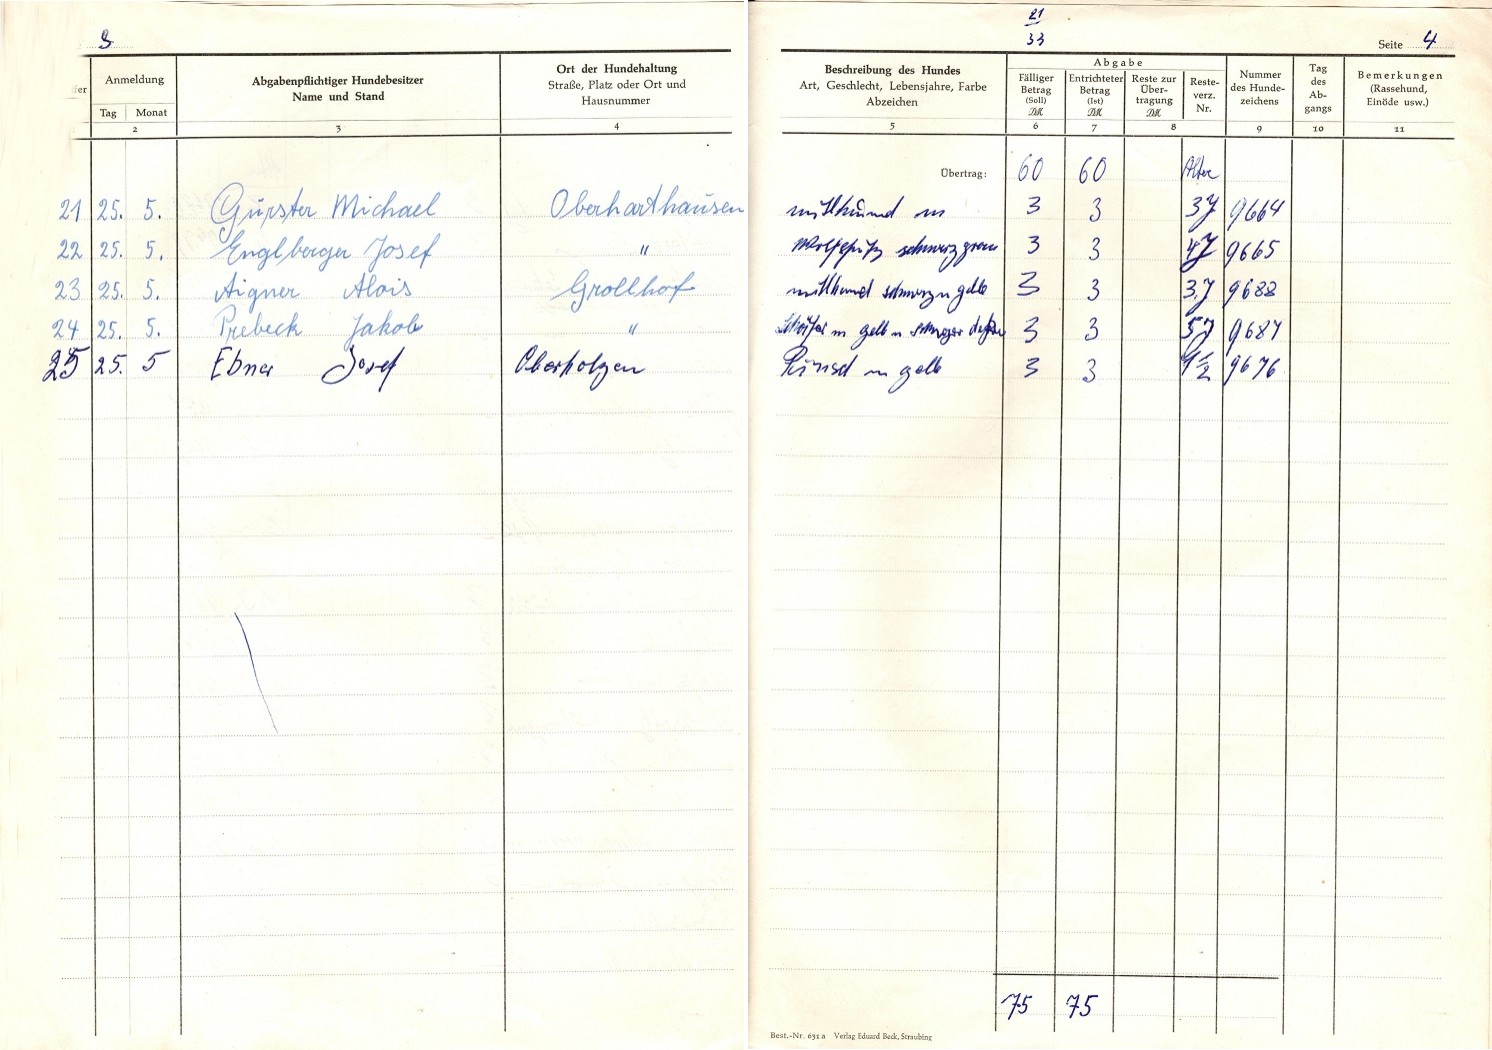 3
21
33
Seite 4
fer
Anmeldung
Tag Monat
Abgabenpflichtiger Hundebesitzer
Name und Stand
Ort der Hundehaltung
Straße, Platz oder Ort und
Hausnummer
Beschreibung des Hundes
Art, Geschlecht, Lebensjahre, Farbe
Abzeichen
Abgabe
Fälliger
Betrag
(Soll)
DM
Entrichteter
Betrag
(Ist)
DM
Reste zur
Über-
tragung
DM
Reste-
verz.
Nr.
Nummer
des Hunde-
zeichens
Tag
des
Ab-
gangs
Bemerkungen
(Rassehund,
Einöde usw.)
2 3 4 5 6 7 8 9 10 11
Übertrag: 60 60 Alter
21 25. 5. Gürster Michael Oberharthausen 3 3 3J 9664
22 25. 5. Englberger Josef " Wolfspitz schwarzgrau 3 3 4J 9665
23 25. 5. Aigner Alois Grollhof schwarz gelb 3 3 3J 9688
24 25. 5. Prebeck Jakob " m gelb 3 3 5J 9687
25 25. 5 Ebner Josef Oberholzen m gelb 3 3 1/2 9676
75 75
Best.-Nr. 631 a Verlag Eduard Beck, Straubing